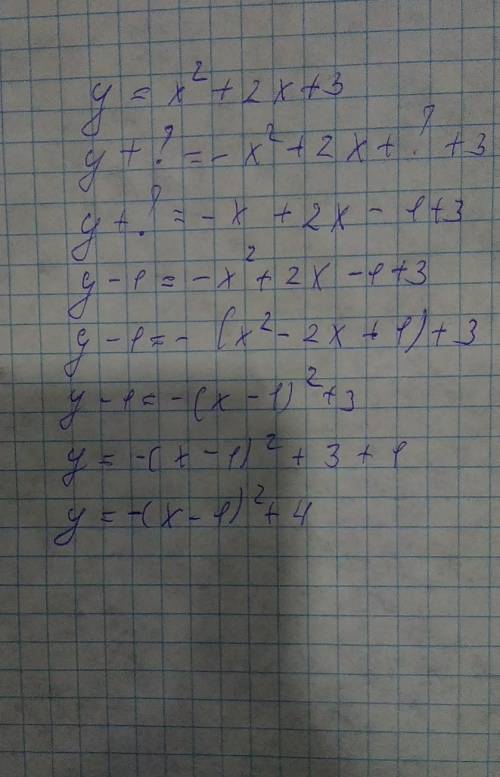 y = x² + 2x + 3
y + ? = - x² + 2x + ? + 3
y + ? = - x + 2x - 1 + 3
y - 1 = - x² + 2x - 1 + 3
y - 1 = - (x² - 2x + 1) + 3
y - 1 = - (x - 1)² + 3
y = - (x - 1)² + 3 + 1
y = - (x - 1)² + 4